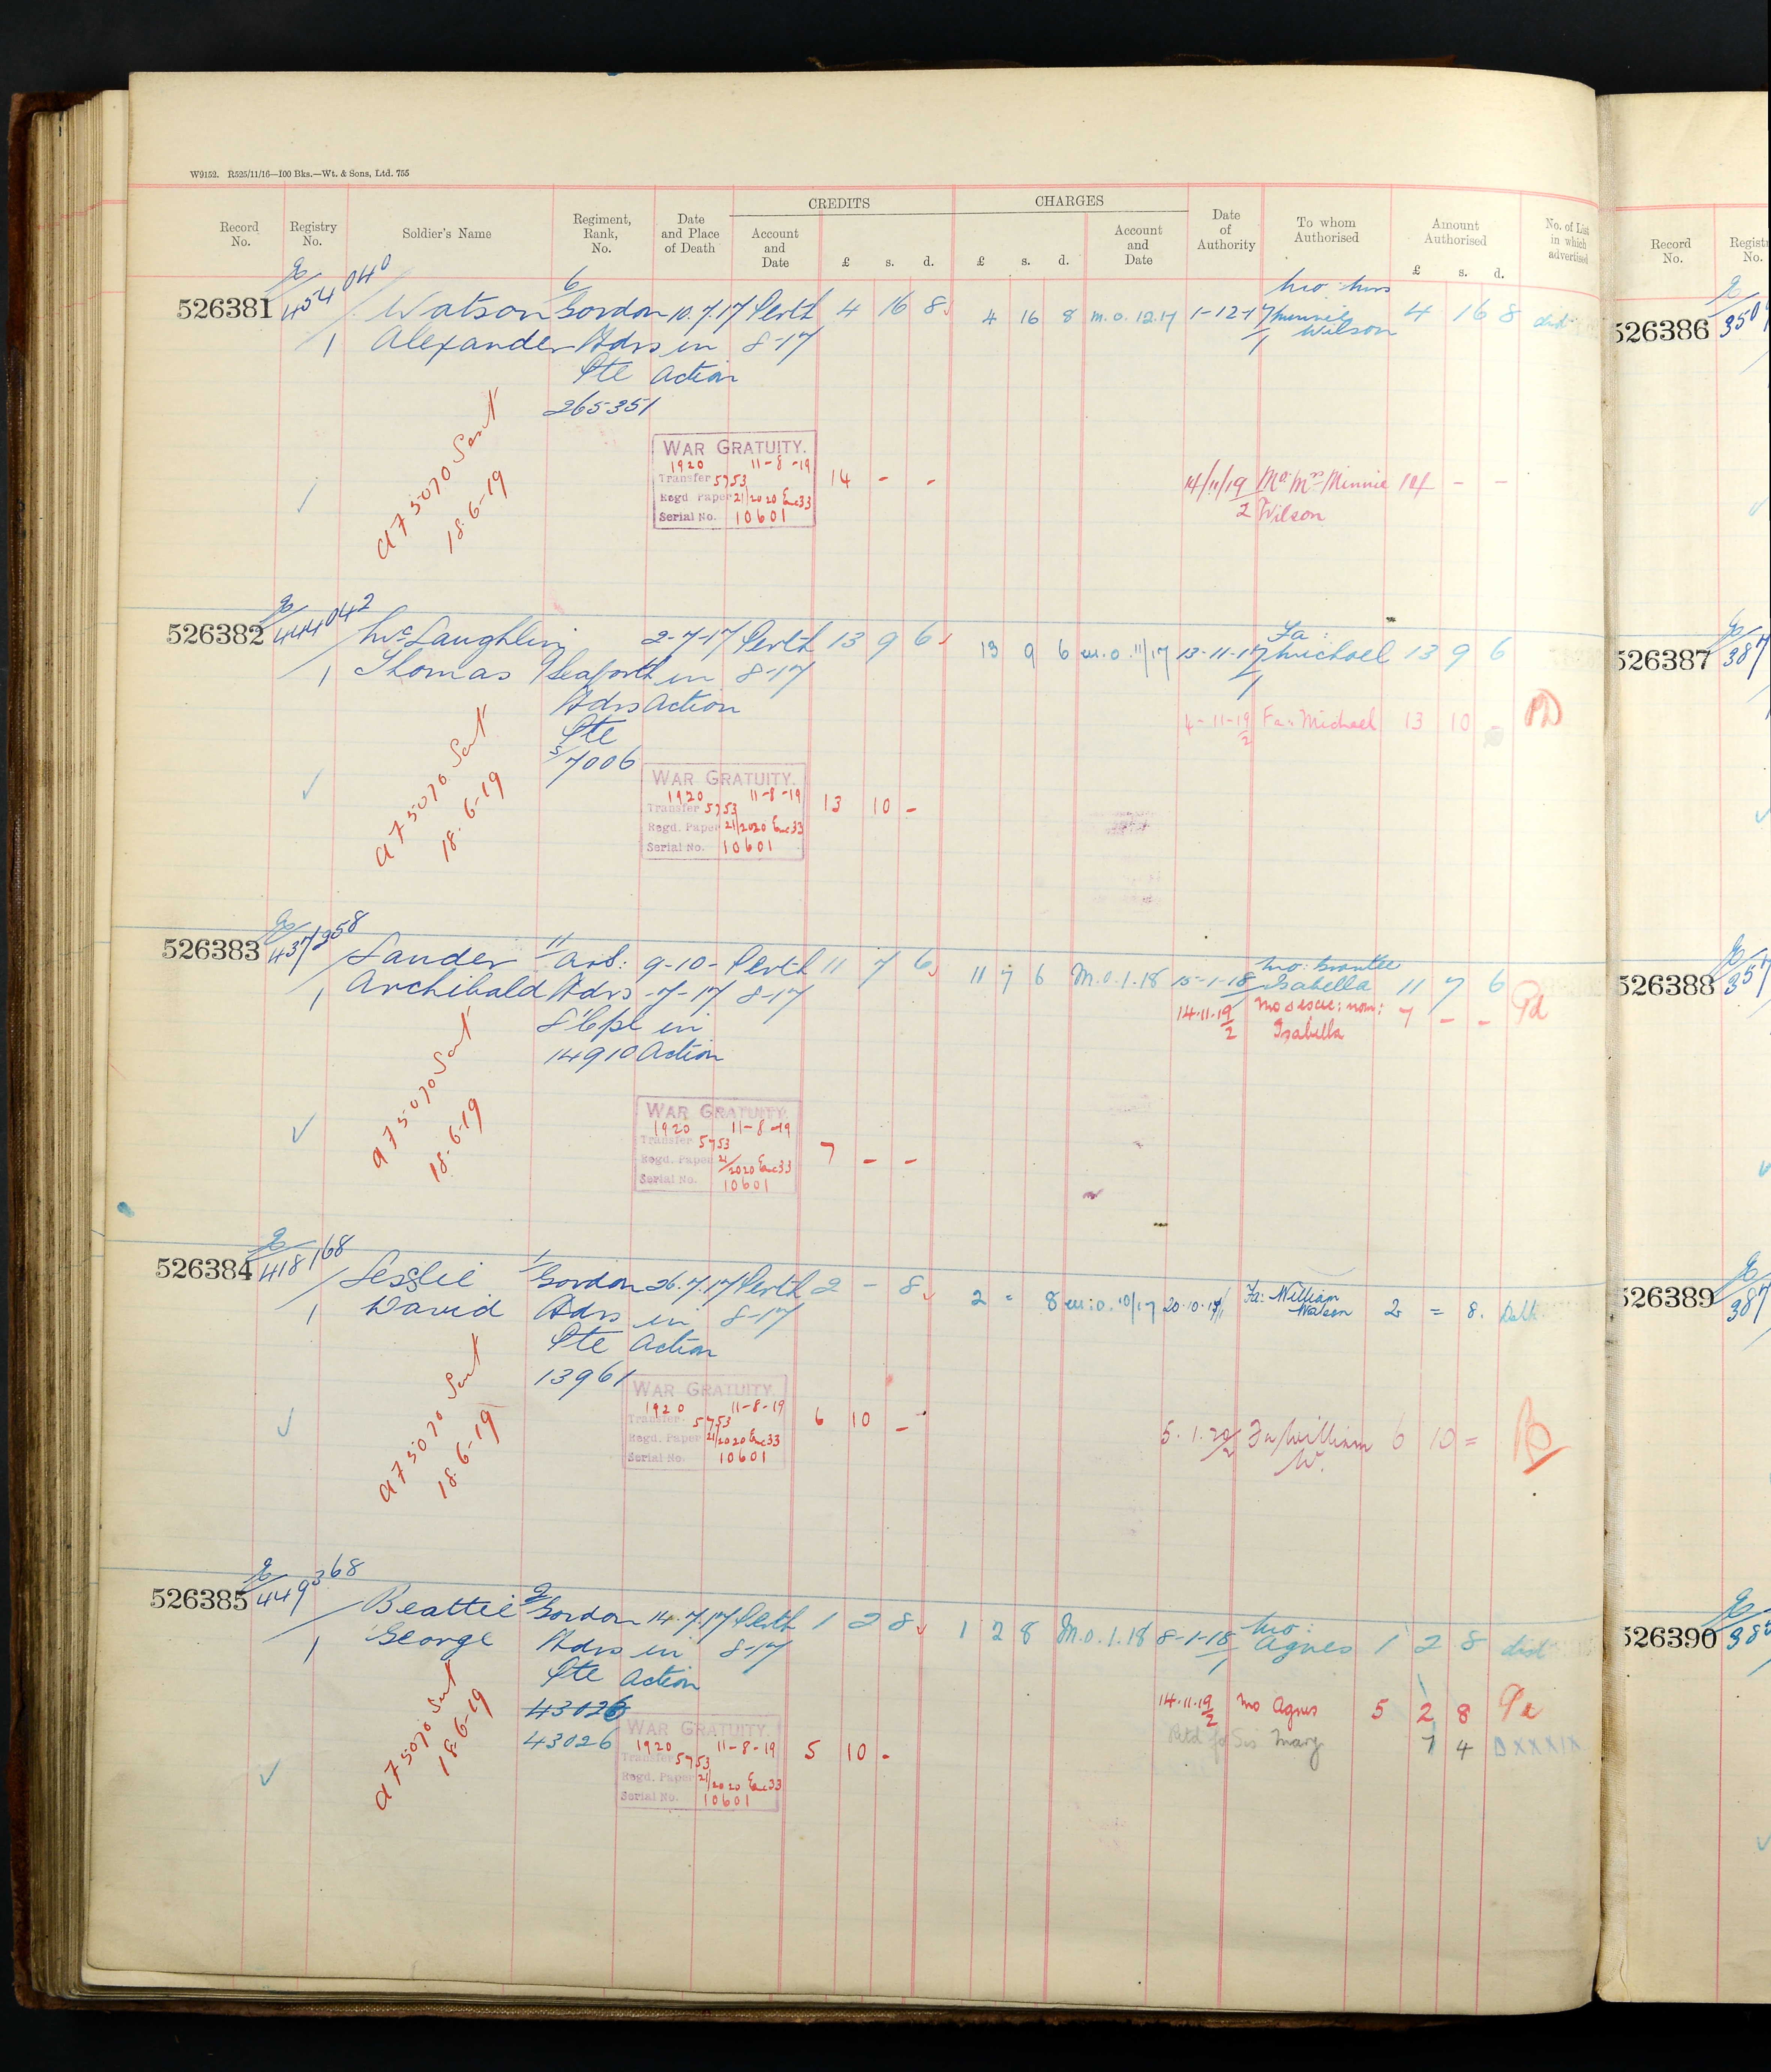 W9152. R525/11/16—100 Bks.—Wt. & Sons, Ltd. 755
CREDITS CHARGES
Record No. Registry No. Soldier's Name Regiment, Rank, No. Date and Place of Death Account and Date £ s. d. £ s. d. Account and Date Date of Authority To whom Authorised Amount Authorised £ s. d. No. of List in which advertised
526381 454040/1 Watson 6/Gordon 10.7.17 Perth 4 16 8 4 16 8 M.O. 12.17 1-12-17/1 Mo: Mrs Minnie Wilson 4 16 8
Alexander Hdrs in 8-17
Pte Action
265351
A75070 Sent
18.6-19
WAR GRATUITY.
1920 11-8-19
Transfer 5753 14 - - 14/11/19/2 Mo. Mrs Minnie Wilson 14 - -
Regd Paper 21/2020 Enc 33
Serial No. 10601
526382 444042/1 McLaughlin 2-7-17 Perth 13 9 6 13 9 6 M.O. 11/17 13-11-17/1 Fa: Michael 13 9 6
Thomas Seaforth in 8-17
Hdrs Action
Pte
S/7006
4-11-19/2 Fa: Michael 13 10 -
A75070 Sent
18.6-19
WAR GRATUITY.
1920 11-8-19
Transfer 5753 13 10 -
Regd. Paper 21/2020 Enc 33
Serial No. 10601
526383 437958/1 Lauder 11/A&S: 9-10- Perth 11 7 6 11 7 6 M.O. 1.18 15-1-18 Mo: Isabella 11 7 6
Archibald Hdrs -7-17 8-17
L/Cpl in
14910 Action
14.11.19/2 Mo & Isabella 7 - - Pd
A75070 Sent
18.6-19
WAR GRATUITY.
1920 11-8-19
Transfer 5753 7 - -
Regd. Paper 21/2020 Enc 33
Serial No. 10601
526384 418168/1 Lesslie 1/Gordon 26.7.17 Perth 2 - 8 2 = 8 M.O. 10/17 20.10.17/1 Fa: William Watson 2 = 8
David Hdrs in 8-17
Pte Action
13961
A75070 Sent
18.6-19
WAR GRATUITY.
1920 11-8-19
Transfer 5753 6 10 - 5.1.20/2 Fa/William W. 6 10 =
Regd. Paper 21/2020 Enc 33
Serial No. 10601
526385 449368/1 Beattie 2/Gordon 14.7.17 Perth 1 2 8 1 2 8 M.O. 1.18 8-1-18/1 Mo: Agnes 1 2 8
George Hdrs in 8-17
Pte Action
43026
43026
14.11.19/2 Mo Agnes 5 2 8
Sis Mary 7 4 DXXXIX
A75070 Sent
18.6-19
WAR GRATUITY.
1920 11-8-19
Transfer 5753 5 10 -
Regd. Paper 21/2020 Enc 33
Serial No. 10601
Record No.
526386
526387
526388
526389
526390